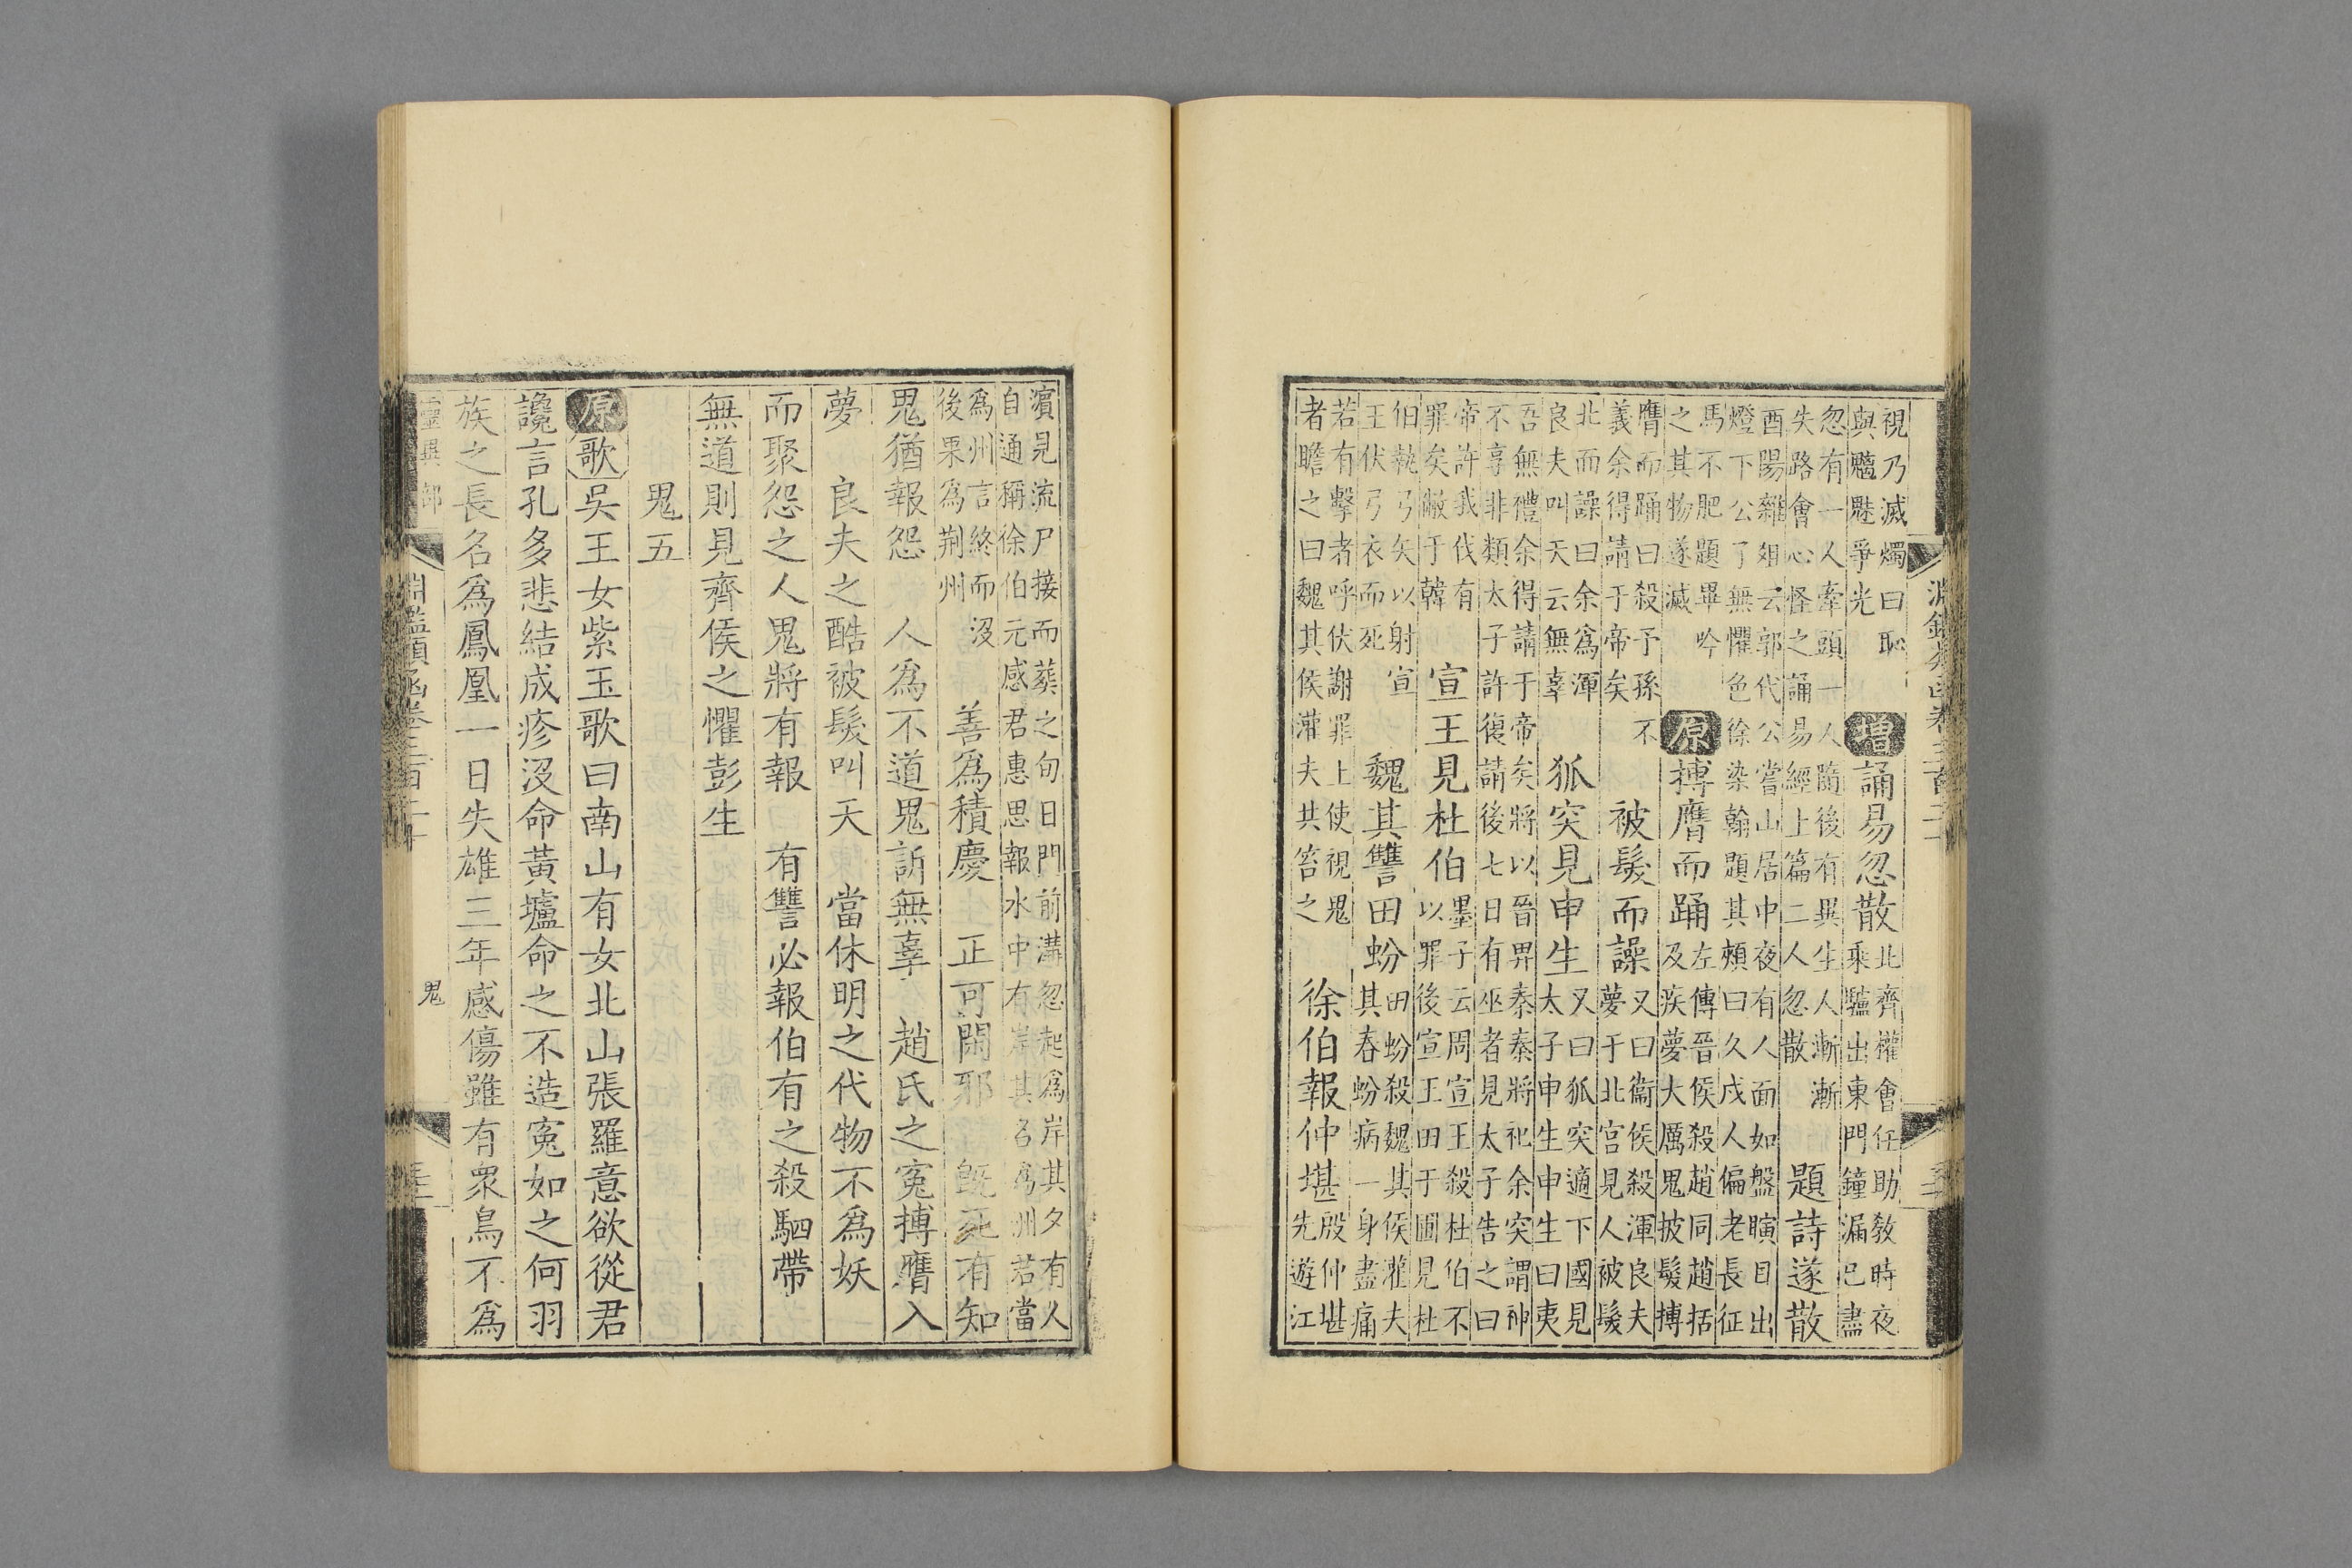 視乃滅燭曰恥
與魑魅爭光
增誦易忽散
北齊權會任助教時夜
乘驢出東門鐘漏已盡
忽有一人牽頭一人隨後有異生人漸漸
失路會心怪之誦易經上篇二人忽散
題詩遂散
酉陽雜俎云郭代公嘗山居中夜有人面如盤瞚目出
燈下公了無懼色徐染翰題其頰曰久戍人偏老長征
馬不肥題畢吟
之其物遂滅
原搏膺而踊
左傳晉侯殺趙同趙括
及疾夢大厲鬼披髮搏
膺而踊曰殺予孫不
義余得請于帝矣
被髮而譟
又曰衞侯殺渾良夫
夢于北宮見人被髮
北面譟曰余爲渾
良夫叫天云無辜
狐突見申生
又曰狐突適下國見
太子申生申生曰夷
吾無禮余得請于帝矣將以晉畀秦秦將祀余突謂神
不享非類太子許復請後七日有巫者見太子告之曰
帝許我伐有
罪矣敝于韓
宣王見杜伯
墨子云周宣王殺杜伯不
以罪後宣王田于圃見杜
伯執弓矢以射宣
王伏弓衣而死
魏其讐田蚡
田蚡殺魏其侯灌夫
其春蚡病一身盡痛
若有擊者呼伏謝罪上使視鬼
者瞻之曰魏其侯灌夫共笞之
徐伯報仲堪
殷仲堪
先遊江
濱見流尸接而葬之旬日門前溝忽起爲岸其夕有人
自通稱徐伯元感君惠思報水中有岸其名爲洲君當
爲州言終而沒
後果爲荆州
善爲積慶　正可閑邪　旣死有知
鬼猶報怨　人爲不道鬼訴無辜　趙氏之寃搏膺入
夢　良夫之酷被髮叫天　當休明之代物不爲妖
而聚怨之人鬼將有報　有讐必報伯有之殺駟帶
無道則見齊侯之懼彭生
鬼五
原歌吳王女紫玉歌曰南山有女北山張羅意欲從君
讒言孔多悲結成疹沒命黃壚命之不造寃如之何羽
族之長名爲鳳凰一日失雄三年感傷雖有衆鳥不爲
靈異部
淵鑑類函卷三百二十
鬼